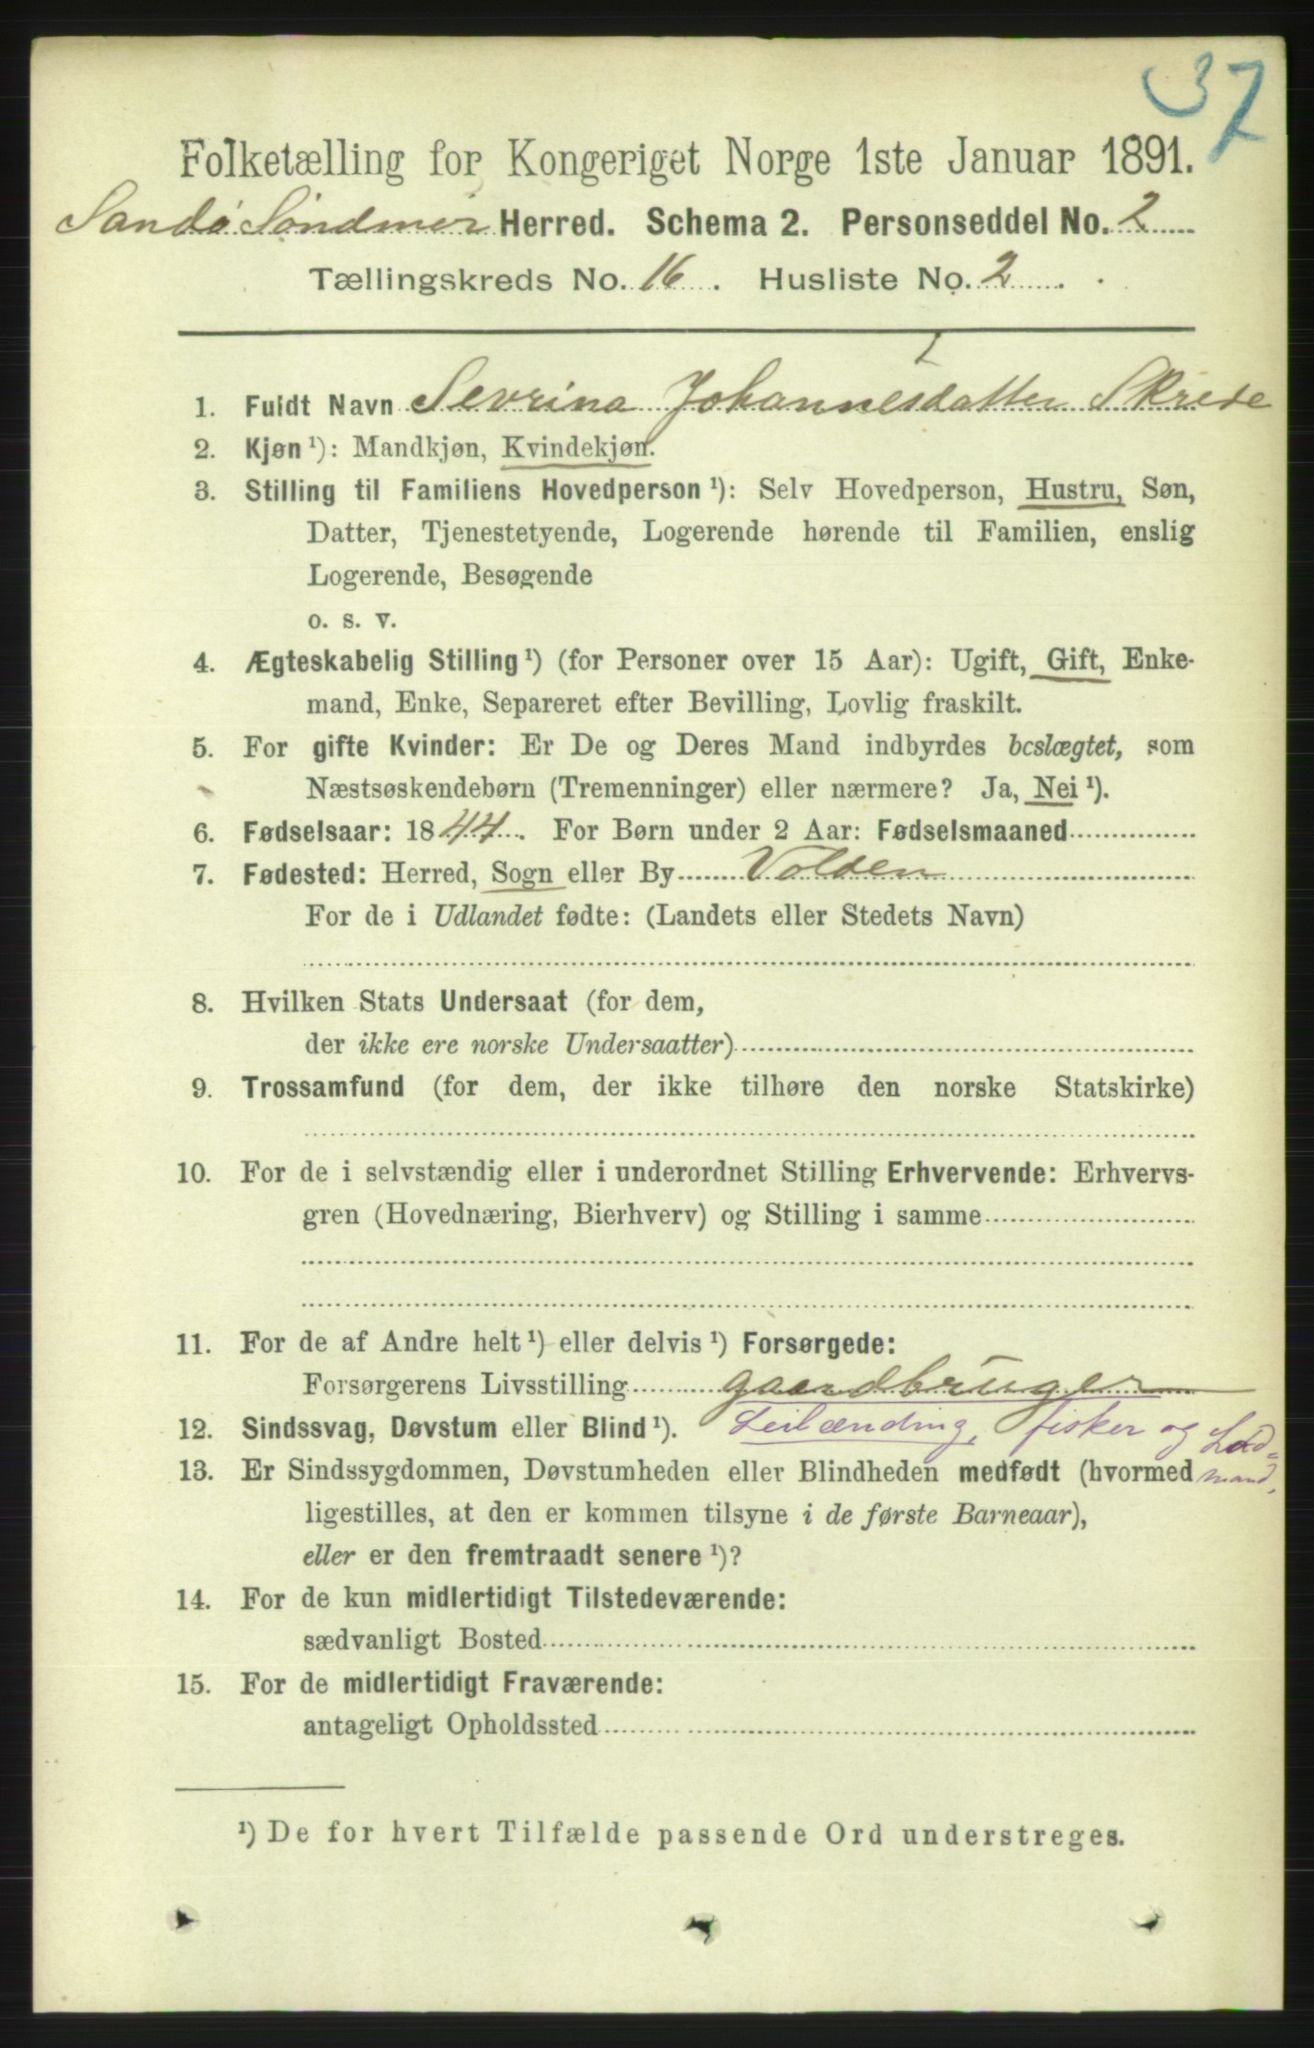 37
Folketælling for Kongeriget Norge 1ste Januar 1891.
Sandø Søndmør Herred. Schema 2. Personseddel No. 2
Tællingskreds No. 16. Husliste No. 2.
1. Fuldt Navn Sevrina Johannesdatter Skrede
2. Kjøn ¹): Mandkjøn, Kvindekjøn.
3. Stilling til Familiens Hovedperson ¹): Selv Hovedperson, Hustru, Søn,
Datter, Tjenestetyende, Logerende hørende til Familien, enslig
Logerende, Besøgende
o. s. v.
4. Ægteskabelig Stilling ¹) (for Personer over 15 Aar): Ugift, Gift, Enke-
mand, Enke, Separeret efter Bevilling, Lovlig fraskilt.
5. For gifte Kvinder: Er De og Deres Mand indbyrdes beslægtet, som
Næstsøskendebørn (Tremenninger) eller nærmere? Ja, Nei ¹).
6. Fødselsaar: 1844. For Børn under 2 Aar: Fødselsmaaned
7. Fødested: Herred, Sogn eller By Volden
For de i Udlandet fødte: (Landets eller Stedets Navn)
8. Hvilken Stats Undersaat (for dem,
der ikke ere norske Undersaatter)
9. Trossamfund (for dem, der ikke tilhøre den norske Statskirke)
10. For de i selvstændig eller i underordnet Stilling Erhvervende: Erhvervs-
gren (Hovednæring, Bierhverv) og Stilling i samme
11. For de af Andre helt ¹) eller delvis ¹) Forsørgede:
Forsørgerens Livsstilling gaardbruger
12. Sindssvag, Døvstum eller Blind ¹). Leilænding, fisker og Lod=
13. Er Sindssygdommen, Døvstumheden eller Blindheden medfødt (hvormed mand.
ligestilles, at den er kommen tilsyne i de første Barneaar),
eller er den fremtraadt senere ¹)?
14. For de kun midlertidigt Tilstedeværende:
sædvanligt Bosted
15. For de midlertidigt Fraværende:
antageligt Opholdssted
¹) De for hvert Tilfælde passende Ord understreges.